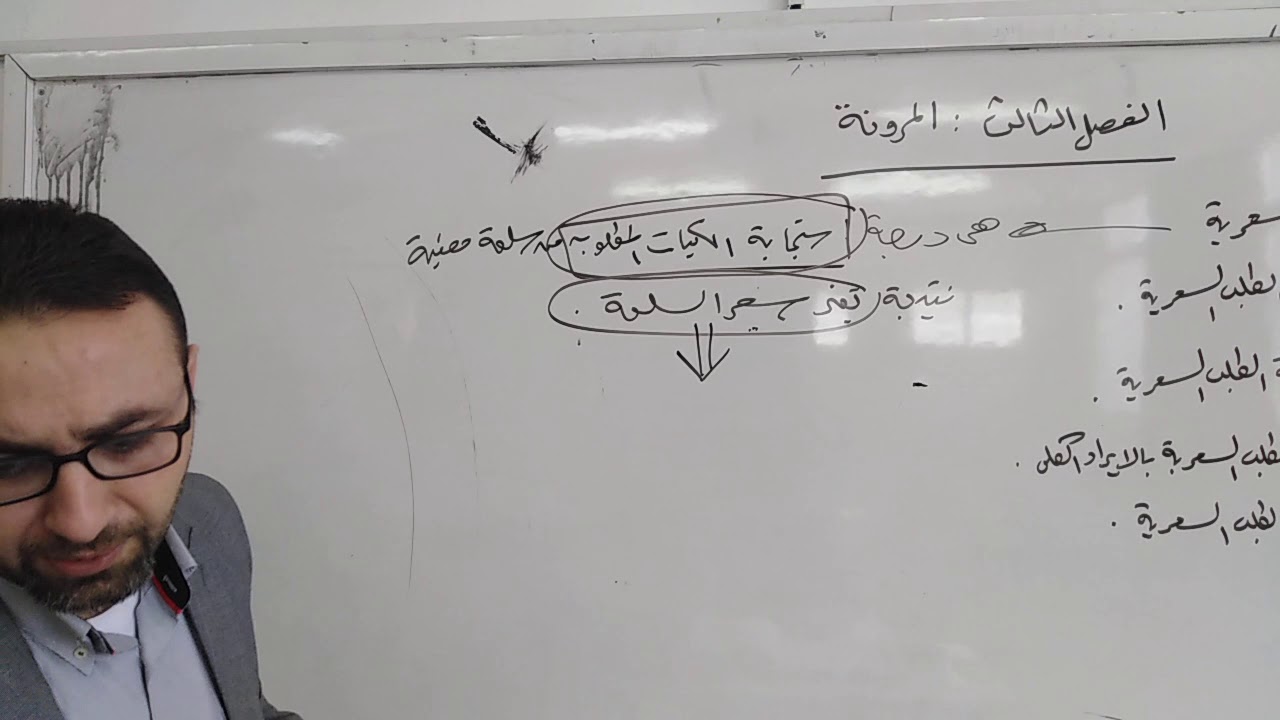 الفصل الثالث : المرونة
سعرية هي درجة استجابة الكميات المطلوبة من سلعة معينة
نتيجة تغير سعر السلعة .
الطلب السعرية .
ة الطلب السعرية .
الطلب السعرية بالايراد الكلي .
الطلب السعرية .